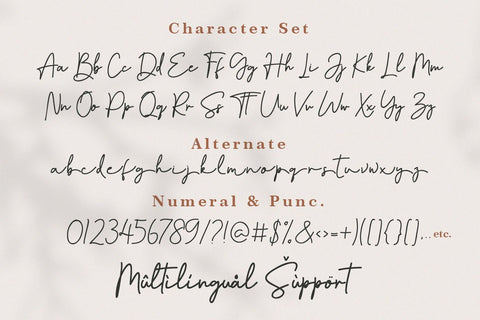 Character Set
Aa Bb Cc Dd Ee Ff Gg Hh Ii Jj Kk Ll Mm
Nn Oo Pp Qq Rr Ss Tt Uu Vv Ww Xx Yy Zz
Alternate
abcdefghijklmnopqrstuvwxyz
Numeral & Punc.
0123456789/?!@#$%&<>=+)([]{}(),.. etc.
Mûltìlíngüål Šùppört